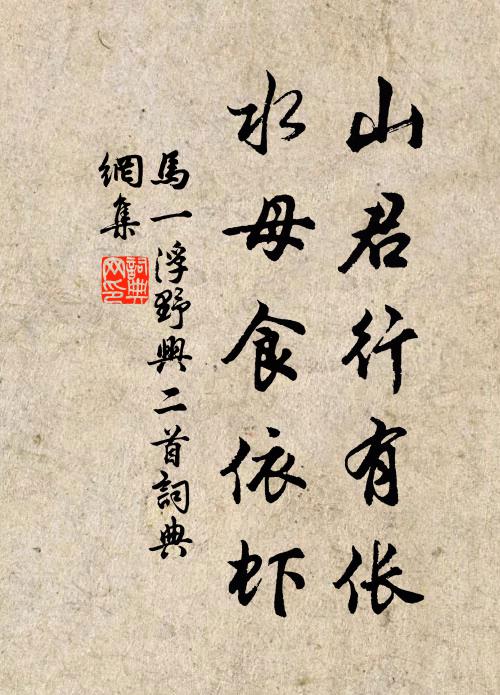 山君行有伥
水母食依虾
馬一浮野興二首詞典
網集
詞典網印